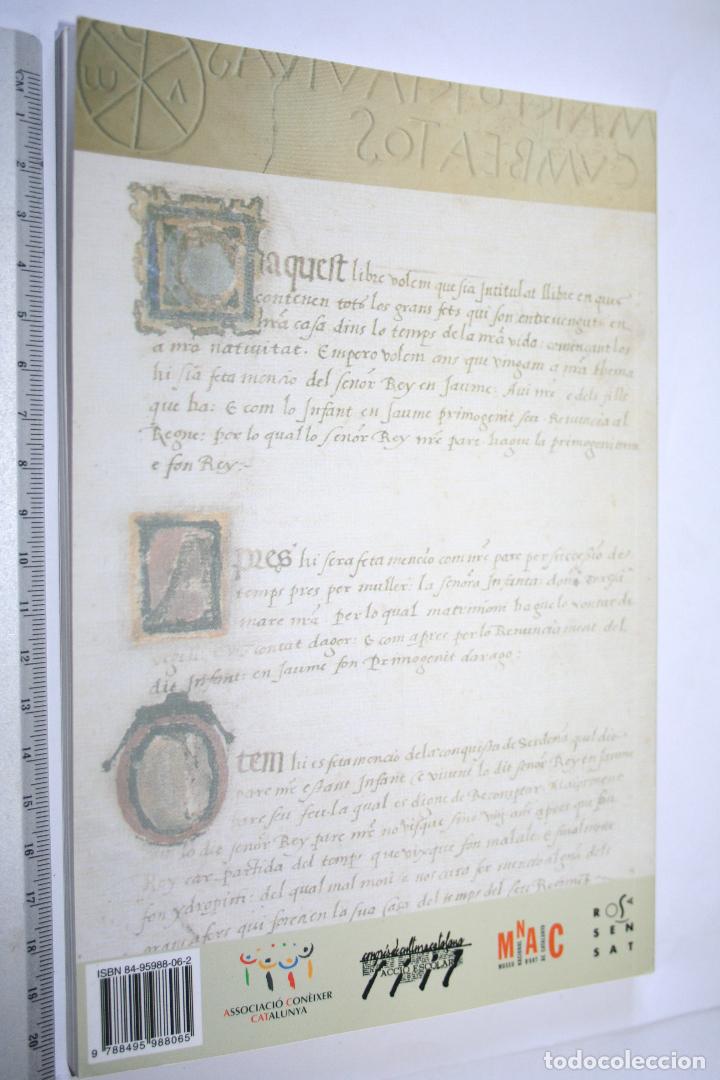 MARTURIA
CUMBEATOS
En aquest libre volem que sia Intitulat llibre en que
contenen tots los grans fets qui son entrevenguts en
nra casa dins lo temps de la nra vida: comencant los
a nra nativitat. Empero volem ans que vingam a nra thema
hi sia feta mencio del senor Rey en Jaume: Aui nre: e dels fills
que ha: E com lo Infant en Jaume primogenit seu. Renuncia al
Regne: per lo qual lo senor Rey nre pare. hague la primogenitura
e fon Rey:
Apres hi sera feta mencio com nre pare per successio de
temps pres per muller: la senora Infanta: dona
mare nra. per lo qual matrimoni hague lo comtat de
comtat dager: E com apres per lo Renunciament del
dit Infant: en Jaume fon Primogenit darago:
Item hi es feta mencio de la conquista de Serdena quel dit
pare nre estant Infant e vivent lo dit senor Rey en Jaume
pare seu feu: la qual es digne de Recomptar. Majorment
lo dit senor Rey pare nre no visque sino
Rey car partida del temps que visque fon malalt: e finalment
fon ydropich: del qual mal mori e nos curo fer mencio alguna dels
grans afers qui foren en la sua casa del temps del seu Regiment
ISBN 84-95988-06-2
9 788495 988065
ASSOCIACIÓ CONÈIXER
CATALUNYA
congrés de cultura catalana
ACCIÓ ESCOLAR
MNAC
MUSEU NACIONAL D'ART DE CATALUNYA
ROSA
SEN
SAT
CM 1 2 3 4 5 6 7 8 9 10 11 12 13 14 15 16 17 18 19 20
todocoleccion